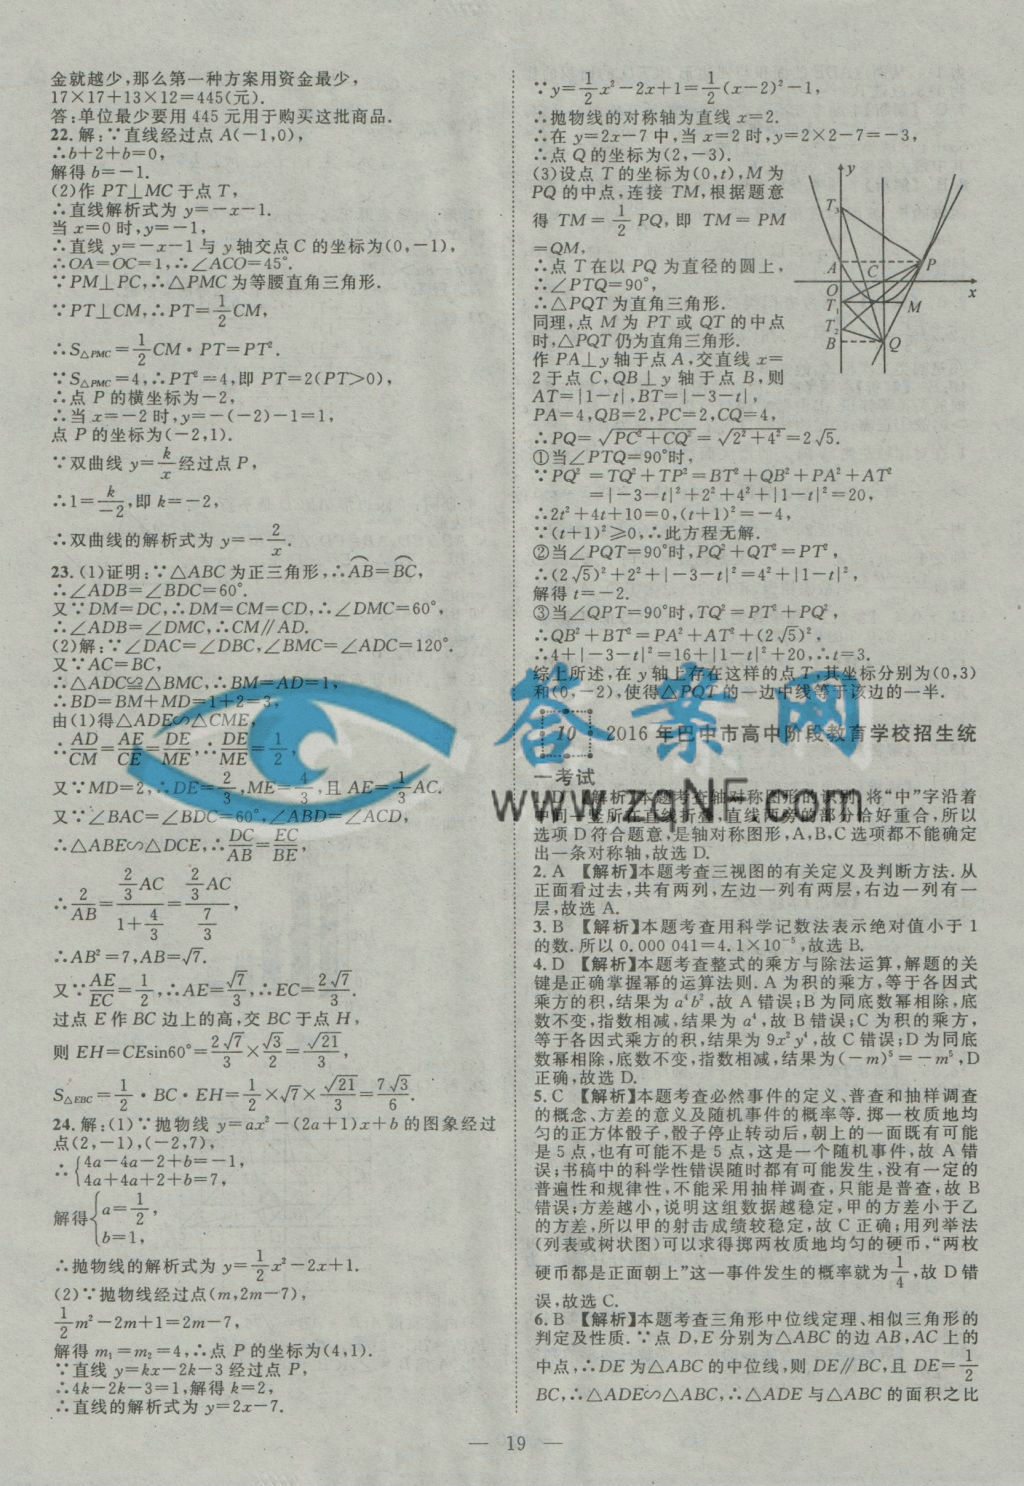 金就越少,那么第一种方案用资金最少,
17×17+13×12=445(元).
答:单位最少要用 445 元用于购买这批商品.
22.解:∵直线经过点 A(-1,0),
∴b+2+b=0,
解得 b=-1.
(2)作 PT⊥MC 于点 T,
∴直线解析式为 y=-x-1.
当 x=0 时,y=-1,
∴直线 y=-x-1 与 y 轴交点 C 的坐标为(0,-1),
∴OA=OC=1,∴∠ACO=45°.
∵PM⊥PC,∴△PMC 为等腰直角三角形.
∵PT⊥CM,∴PT=1/2CM,
∴S△PMC=1/2CM·PT=PT².
∵S△PMC=4,∴PT²=4,即 PT=2(PT>0),
∴点 P 的横坐标为-2,
∴当 x=-2 时,y=-(-2)-1=1,
点 P 的坐标为(-2,1).
∵双曲线 y=k/x经过点 P,
∴1=k/-2,即 k=-2,
∴双曲线的解析式为 y=-2/x.
23.(1)证明:∵△ABC 为正三角形,∴AB⌒=BC⌒,
∴∠ADB=∠BDC=60°.
又∵DM=DC,∴DM=CM=CD,∴∠DMC=60°,
∴∠ADB=∠DMC,∴CM∥AD.
(2)解:∵∠DAC=∠DBC,∠BMC=∠ADC=120°.
又∵AC=BC,
∴△ADC≌△BMC,∴BM=AD=1,
∴BD=BM+MD=1+2=3,
由(1)得△ADE∽△CME,
∴AD/CM=AE/CE=DE/ME,∴DE/ME=1/2,
又∵MD=2,∴DE=2/3,ME=4/3,且 AE=1/3AC.
又∵∠BAC=∠BDC=60°,∠ABD=∠ACD,
∴△ABE∽△DCE,∴DC/AB=EC/BE,
∴2/AB=(2/3AC)/(1+4/3)=(2/3AC)/(7/3),
∴AB²=7,AB=√7.
又∵AE/EC=1/2,∴AE=√7/3,∴EC=2√7/3.
过点 E 作 BC 边上的高,交 BC 于点 H,
则 EH=CEsin60°=2√7/3×√3/2=√21/3,
S△EBC=1/2·BC·EH=1/2×√7×√21/3=7√3/6.
24.解:(1)∵抛物线 y=ax²-(2a+1)x+b 的图象经过
点(2,-1),(-2,7),
∴{4a-4a-2+b=-1,
4a+4a+2+b=7,
解得{a=1/2,
b=1,
∴抛物线的解析式为 y=1/2x²-2x+1.
(2)∵抛物线经过点(m,2m-7),
1/2m²-2m+1=2m-7,
解得 m₁=m₂=4,∴点 P 的坐标为(4,1).
∵直线 y=kx-2k-3 经过点 P,
∴4k-2k-3=1,解得 k=2,
∴直线的解析式为 y=2x-7.
∵y=1/2x²-2x+1=1/2(x-2)²-1,
∴抛物线的对称轴为直线 x=2.
∴在 y=2x-7 中,当 x=2 时,y=2×2-7=-3,
∴点 Q 的坐标为(2,-3).
(3)设点 T 的坐标为(0,t),M 为
PQ 的中点,连接 TM,根据题意
得 TM=1/2PQ,即 TM=PM
=QM,
∴点 T 在以 PQ 为直径的圆上,
∴∠PTQ=90°,
∴△PQT 为直角三角形.
同理,点 M 为 PT 或 QT 的中点
时,△PQT 仍为直角三角形.
作 PA⊥y 轴于点 A,交直线 x=
2 于点 C,QB⊥y 轴于点 B,则
AT=|1-t|,BT=|-3-t|,
PA=4,QB=2,PC=2,CQ=4,
y
T₃
A
C
P
O
x
T₁
M
T₂
B
Q
∴PQ=√(PC²+CQ²)=√(2²+4²)=2√5.
①当∠PTQ=90°时,
∵PQ²=TQ²+TP²=BT²+QB²+PA²+AT²
=|-3-t|²+2²+4²+|1-t|²=20,
∴2t²+4t+10=0,(t+1)²=-4,
∵(t+1)²≥0,∴此方程无解.
②当∠PQT=90°时,PQ²+QT²=PT²,
∴(2√5)²+2²+|-3-t|²=4²+|1-t|²,
解得 t=-2.
③当∠QPT=90°时,TQ²=PT²+PQ²,
∴QB²+BT²=PA²+AT²+(2√5)²,
∴4+|-3-t|²=16+|1-t|²+20,∴t=3.
综上所述,在 y 轴上存在这样的点 T,其坐标分别为(0,3)
和(0,-2),使得△PQT 的一边中线等于该边的一半.
答案网
www.zqNF.com
10 2016 年巴中市高中阶段教育学校招生统
一考试
1.D 【解析】本题考查轴对称图形的识别.将“中”字沿着
中间一竖所在直线折叠,直线两旁的部分恰好重合,所以
选项 D 符合题意,是轴对称图形,A,B,C 选项都不能确定
出一条对称轴,故选 D.
2.A 【解析】本题考查三视图的有关定义及判断方法.从
正面看过去,共有两列,左边一列有两层,右边一列有一
层,故选 A.
3.B 【解析】本题考查用科学记数法表示绝对值小于 1
的数.所以 0.000 041=4.1×10⁻⁵,故选 B.
4.D 【解析】本题考查整式的乘方与除法运算,解题的关
键是正确掌握幂的运算法则.A 为积的乘方,等于各因式
乘方的积,结果为 a⁴b²,故 A 错误;B 为同底数幂相除,底
数不变,指数相减,结果为 a⁴,故 B 错误;C 为积的乘方,
等于各因式乘方的积,结果为 9x²y⁴,故 C 错误;D 为同底
数幂相除,底数不变,指数相减,结果为(-m)⁵=-m⁵,D
正确,故选 D.
5.C 【解析】本题考查必然事件的定义、普查和抽样调查
的概念、方差的意义及随机事件的概率等.掷一枚质地均
匀的正方体骰子,骰子停止转动后,朝上的一面既有可能
是 5 点,也有可能不是 5 点,这是一个随机事件,故 A 错
误;书稿中的科学性错误随时都有可能发生,没有一定的
普遍性和规律性,不能采用抽样调查,只能是普查,故 B
错误;方差越小,说明这组数据越稳定,甲的方差小于乙
的方差,所以甲的射击成绩较稳定,故 C 正确;用列举法
(列表或树状图)可以求得掷两枚质地均匀的硬币,“两枚
硬币都是正面朝上”这一事件发生的概率就为1/4,故 D 错
误,故选 C.
6.B 【解析】本题考查三角形中位线定理、相似三角形的
判定及性质.∵点 D,E 分别为△ABC 的边 AB,AC 上的
中点,∴DE 为△ABC 的中位线,则 DE∥BC,且 DE=1/2
BC,∴△ADE∽△ABC,∴△ADE 与△ABC 的面积之比
— 19 —